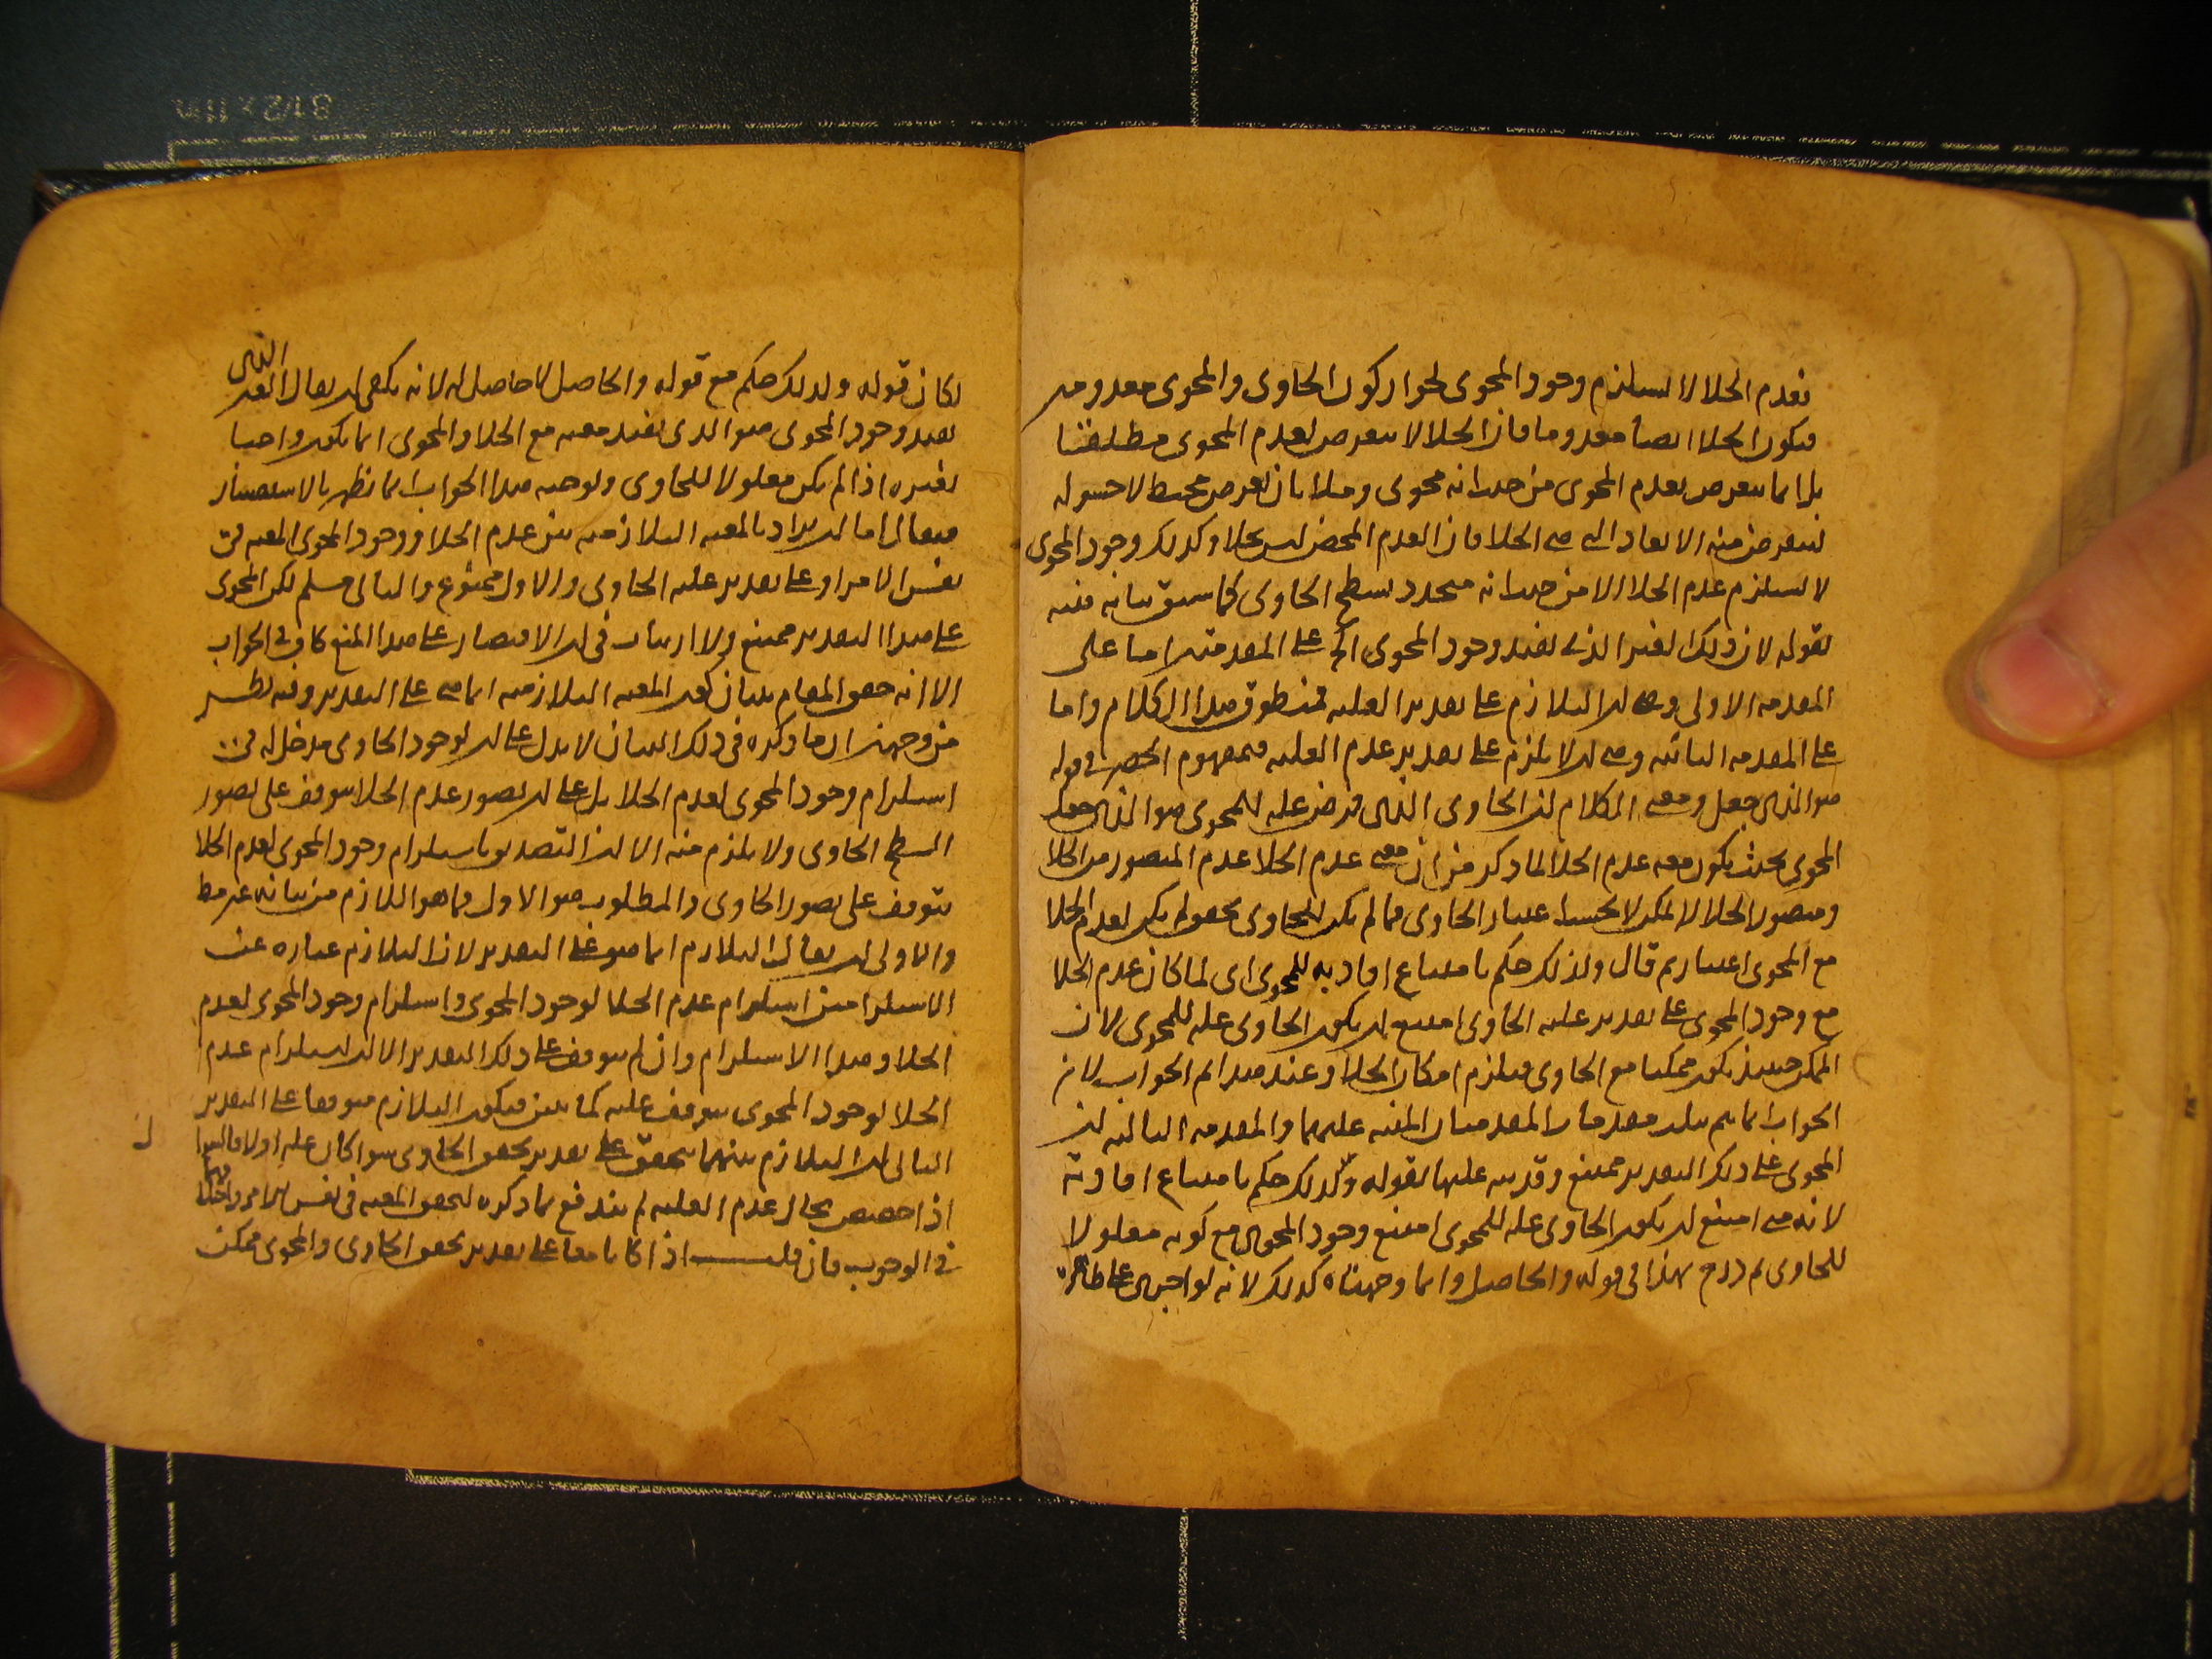 فعدم الخلا لا يستلزم وجود المحوى لجواز كون الحاوى والمحوى معدومين
فيكون الخلا ايضا معدوما فان الخلا لا يتعرض لعدم المحوى مطلقا
بل انما يتعرض بعدم المحوى من حيث انه محوى وملا بان يعرض محيط لا حشو له
ليفرض فيه الابعاد التى هى الخلا فان العدم المحض ليس بخلا وكذلك وجود المحوى
لا يستلزم عدم الخلا الا من حيث انه متحدد بسطح الحاوى كما سبق بيانه فنبه
بقوله لان ذلك الغير الذى يفيد وجود المحوى الخ على المقدمتين اما على
المقدمة الاولى وهى ان التلازم على تقدير العلية فبمنطوق هذا الكلام واما
على المقدمة الثانية وهى ان لا يلزم على تقدير عدم العلية فبمفهوم الحصر فى قوله
هو الذى جعل ومعنى الكلام ان الحاوى الذى فرض علة للمحوى هو الذى جعل
المحوى بحيث يكون معه عدم الخلا لما ذكر من ان معنى عدم الخلا عدم المتصور من الخلا
ومتصور الخلا لا يمكن الا بحسب اعتبار الحاوى فما لم يكن للحاوى تحقق لم يكن لعدم الخلا
مع المحوى اعتبار ثم قال ولذلك حكم بامتناع افادته للمحوى اى لما كان عدم الخلا
مع وجود المحوى على تقدير علية الحاوى امتنع ان يكون الحاوى علة للمحوى لان
الممكن حينئذ يكون ممكنا مع الحاوى فيلزم امكان الخلا وعند هذا تم الجواب لان
الجواب انما يتم بثلث مقدمات المقدمتان المنبه عليهما والمقدمة الثالثة ان
المحوى على ذلك التقدير ممتنع وقد نبه عليها بقوله وكذلك حكم بامتناع افادته
لانه متى امتنع ان يكون الحاوى علة للمحوى امتنع وجود المحوى مع كونه معلولا
للحاوى ثم درج هذا فى قوله والحاصل وانما وجهناه كذلك لانه لو اجرى على ظاهره
لكان قوله ولذلك حكم مع قوله والحاصل لا حاصل له لانه يكفى ان يقال الغير الذى
يفيد وجود المحوى هو الذى يفيد معيته مع الخلا والمحوى انما يكون واجبا
بغيره اذا لم يكن معلولا للحاوى وتوجيه هذا الجواب انما يظهر بالاستفسار
فيقال اما ان يراد بالمعية التلازمية بين عدم الخلا ووجود المحوى المعية فى
نفس الامر او على تقدير علية الحاوى والاول ممنوع والثانى مسلم لكن المحوى
على هذا التقدير ممتنع ولا ارتياب فى ان الاقتصار على هذا المنع كاف فى الجواب
الا انه حقق المقام ببيان كون المعية التلازمية انما هى على التقدير وفيه نظر
من وجهين ان ما ذكره فى ذلك البيان لا يدل على ان لوجود الحاوى مدخلا فى
استلزام وجود المحوى لعدم الخلا بل على ان تصور عدم الخلا يتوقف على تصور
السطح الحاوى ولا يلزم منه الا ان التصديق باستلزام وجود المحوى لعدم الخلا
يتوقف على تصور الحاوى والمطلوب هو الاول فما هو اللازم من بيانه غير مط
والاولى ان يقال التلازم انما هو على التقدير لان التلازم عبارة عن
الاستلزامين استلزام عدم الخلا لوجود المحوى واستلزام وجود المحوى لعدم
الخلا وهذا الاستلزام وان لم يتوقف على ذلك التقدير الا ان استلزام عدم
الخلا لوجود المحوى يتوقف عليه كما تبين فيكون التلازم متوقفا على التقدير
الثانى ان التلازم بينهما يتحقق على تقدير تحقق الحاوى سوا كان علة اولا فالسؤال
اذا خصص بحال عدم العلية لم يندفع بما ذكره لتحقق المعية فى نفس الامر واختلافهما
فى الوجوب فان قلت اذا كانا معا على تقدير تحقق الحاوى والمحوى ممكن